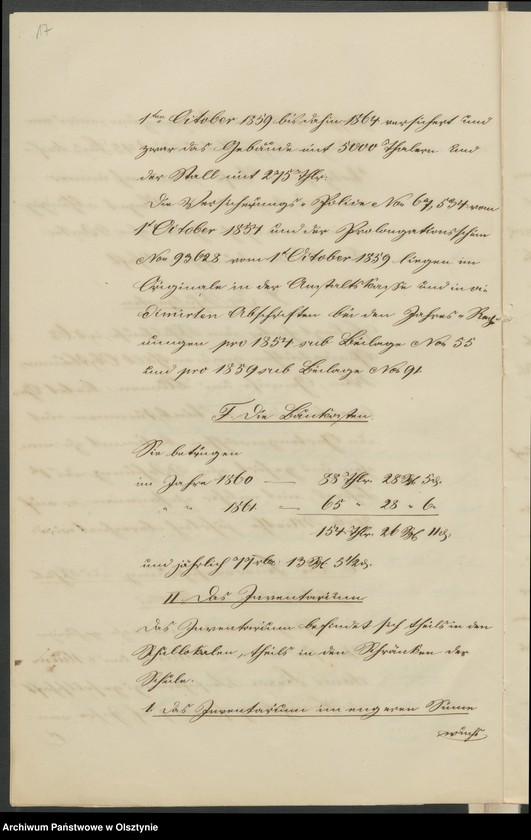 17
1ten October 1859 bis dahin 1864 versichert und
zwar das Gebäude mit 5000 Thalern und
der Stall mit 275 Thlr.
Die Versicherungs-Police No 67,534 vom
1t October 1854 und der Prolongationsschein
No 93628 vom 1t October 1859 liegen im
Originale in der Anstaltskasse und in vi-
dimirten Abschriften bei den Jahres-Rech-
nungen pro 1854 sub Beilage No 55
und pro 1859 sub Beilage No 91.
F. Die Baukosten.
Sie betrugen
im Jahre 1860 — 88 Thlr. 28 Sg 5 d.
" " 1861 — 65 " 28 " 6.
154 Thlr. 26 Sg 11 d.
und jährlich 77 rtl. 13 Sg 5 1/2 d.
II. Das Inventarium
Das Inventarium befindet sich theils in den
Schullokalen, theils in den Schränken der
Schule.
1. Das Inventarium im engeren Sinne
Archiwum Państwowe w Olsztynie